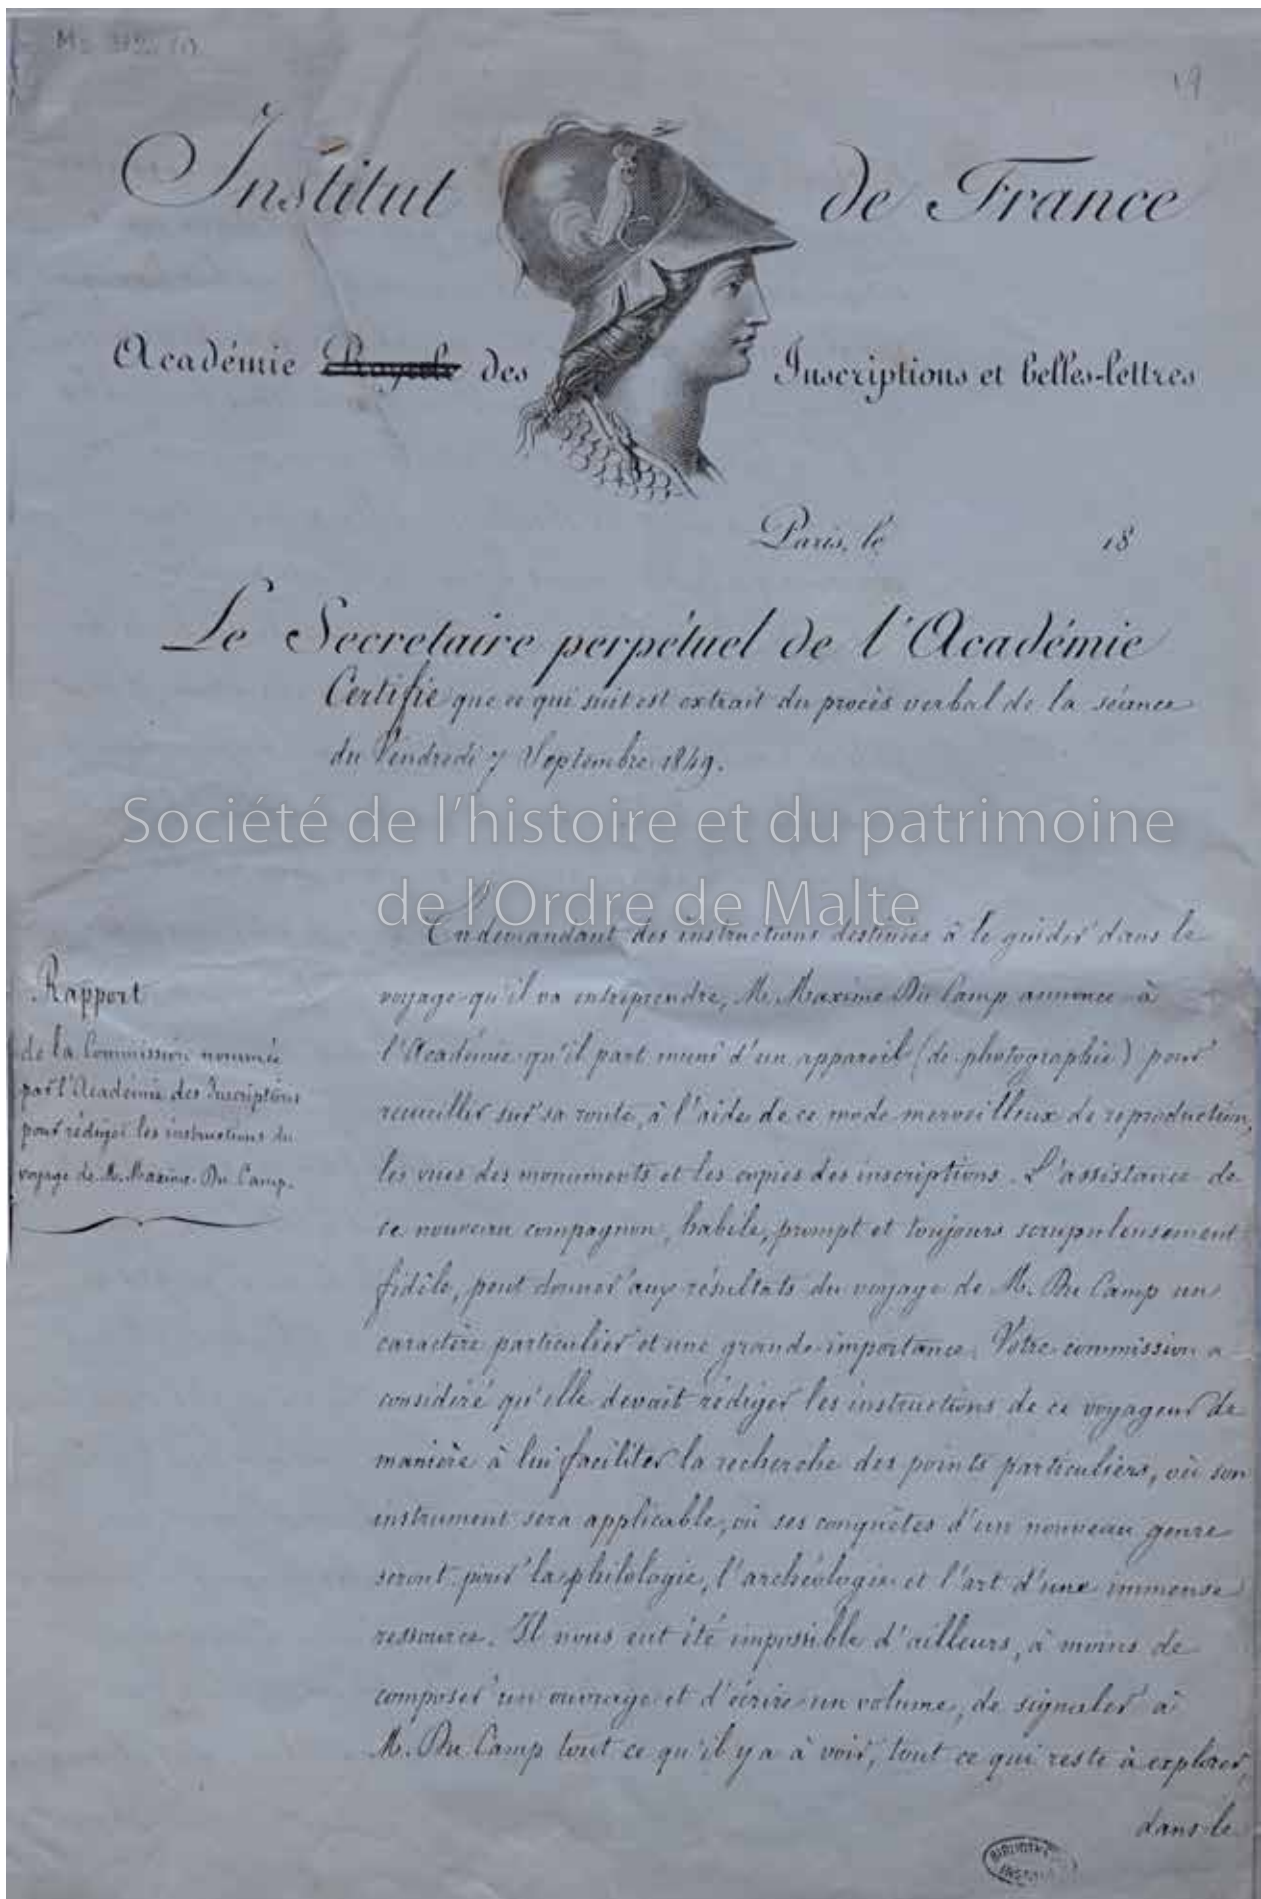 19
Institut de France
Académie Royale des Inscriptions et belles-lettres
Paris, le 18
Le Secretaire perpétuel de l'Académie
Certifie que ce qui suit est extrait du procès verbal de la séance
du Vendredi 7 Septembre 1849.
Société de l'histoire et du patrimoine
de l'Ordre de Malte
Rapport
de la Commission nommée
par l'Académie des Inscriptions
pour rédiger les instructions du
voyage de M. Maxime Du Camp.
En demandant des instructions destinées à le guider dans le
voyage qu'il va entreprendre, M. Maxime Du Camp annonce à
l'Académie qu'il part muni d'un appareil (de photographie) pour
recueillir sur sa route, à l'aide de ce mode merveilleux de reproduction,
les vues des monuments et les copies des inscriptions. L'assistance de
ce nouveau compagnon, habile, prompt et toujours scrupuleusement
fidèle, peut donner aux résultats du voyage de M. Du Camp un
caractère particulier et une grande importance. Votre commission a
considéré qu'elle devait rédiger les instructions de ce voyageur de
manière à lui faciliter la recherche des points particuliers, où son
instrument sera applicable, où ses conquêtes d'un nouveau genre
seront pour la philologie, l'archéologie et l'art d'une immense
ressource. Il nous eut été impossible d'ailleurs, à moins de
composer un ouvrage et d'écrire un volume, de signaler à
M. Du Camp tout ce qu'il y a à voir, tout ce qui reste à explorer,
dans le